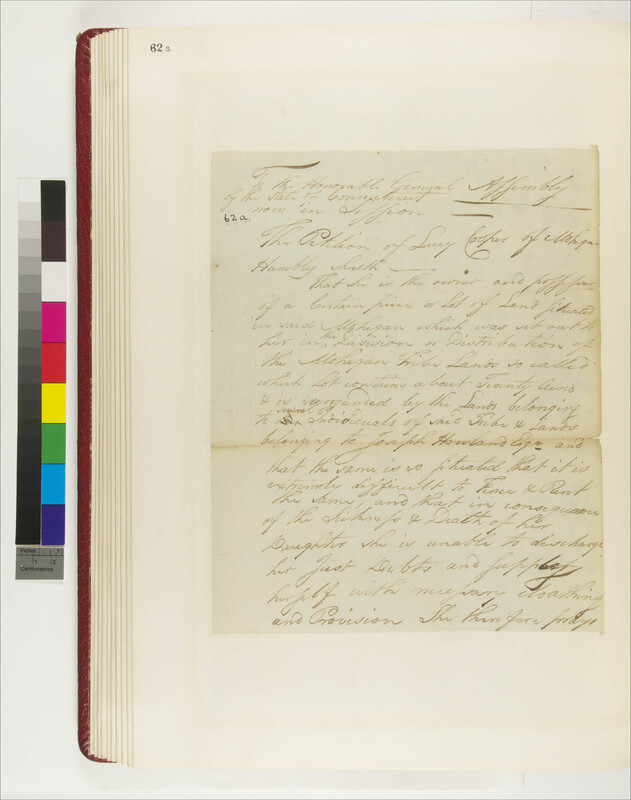 62a
To the Honorable General Assembly
of the State of Connecticut
now in Session
62a.
The Petition of Lucy Cooper of Mohegan
Humbly sheweth
That she is the owner and possessor
of a Certain piece or Lot of Land situated
in said Mohegan which was set out to
her in the Division or Distribution of
the Mohegan Tribe Lands so called
which Lot contains about Twenty Acres
& is surrounded by the Lands belonging
to Individuals of said Tribe & Lands
belonging to Joseph Howland Esqr and
that the same is so situated that it is
extremely difficult to Fence & Rent
the same, and that in consequence
of the Sickness & Death of her
Daughter she is unable to discharge
her Just Debts and supply
herself with necessary cloathing
and Provision She therefore prays
Inches 1 2
Centimetres